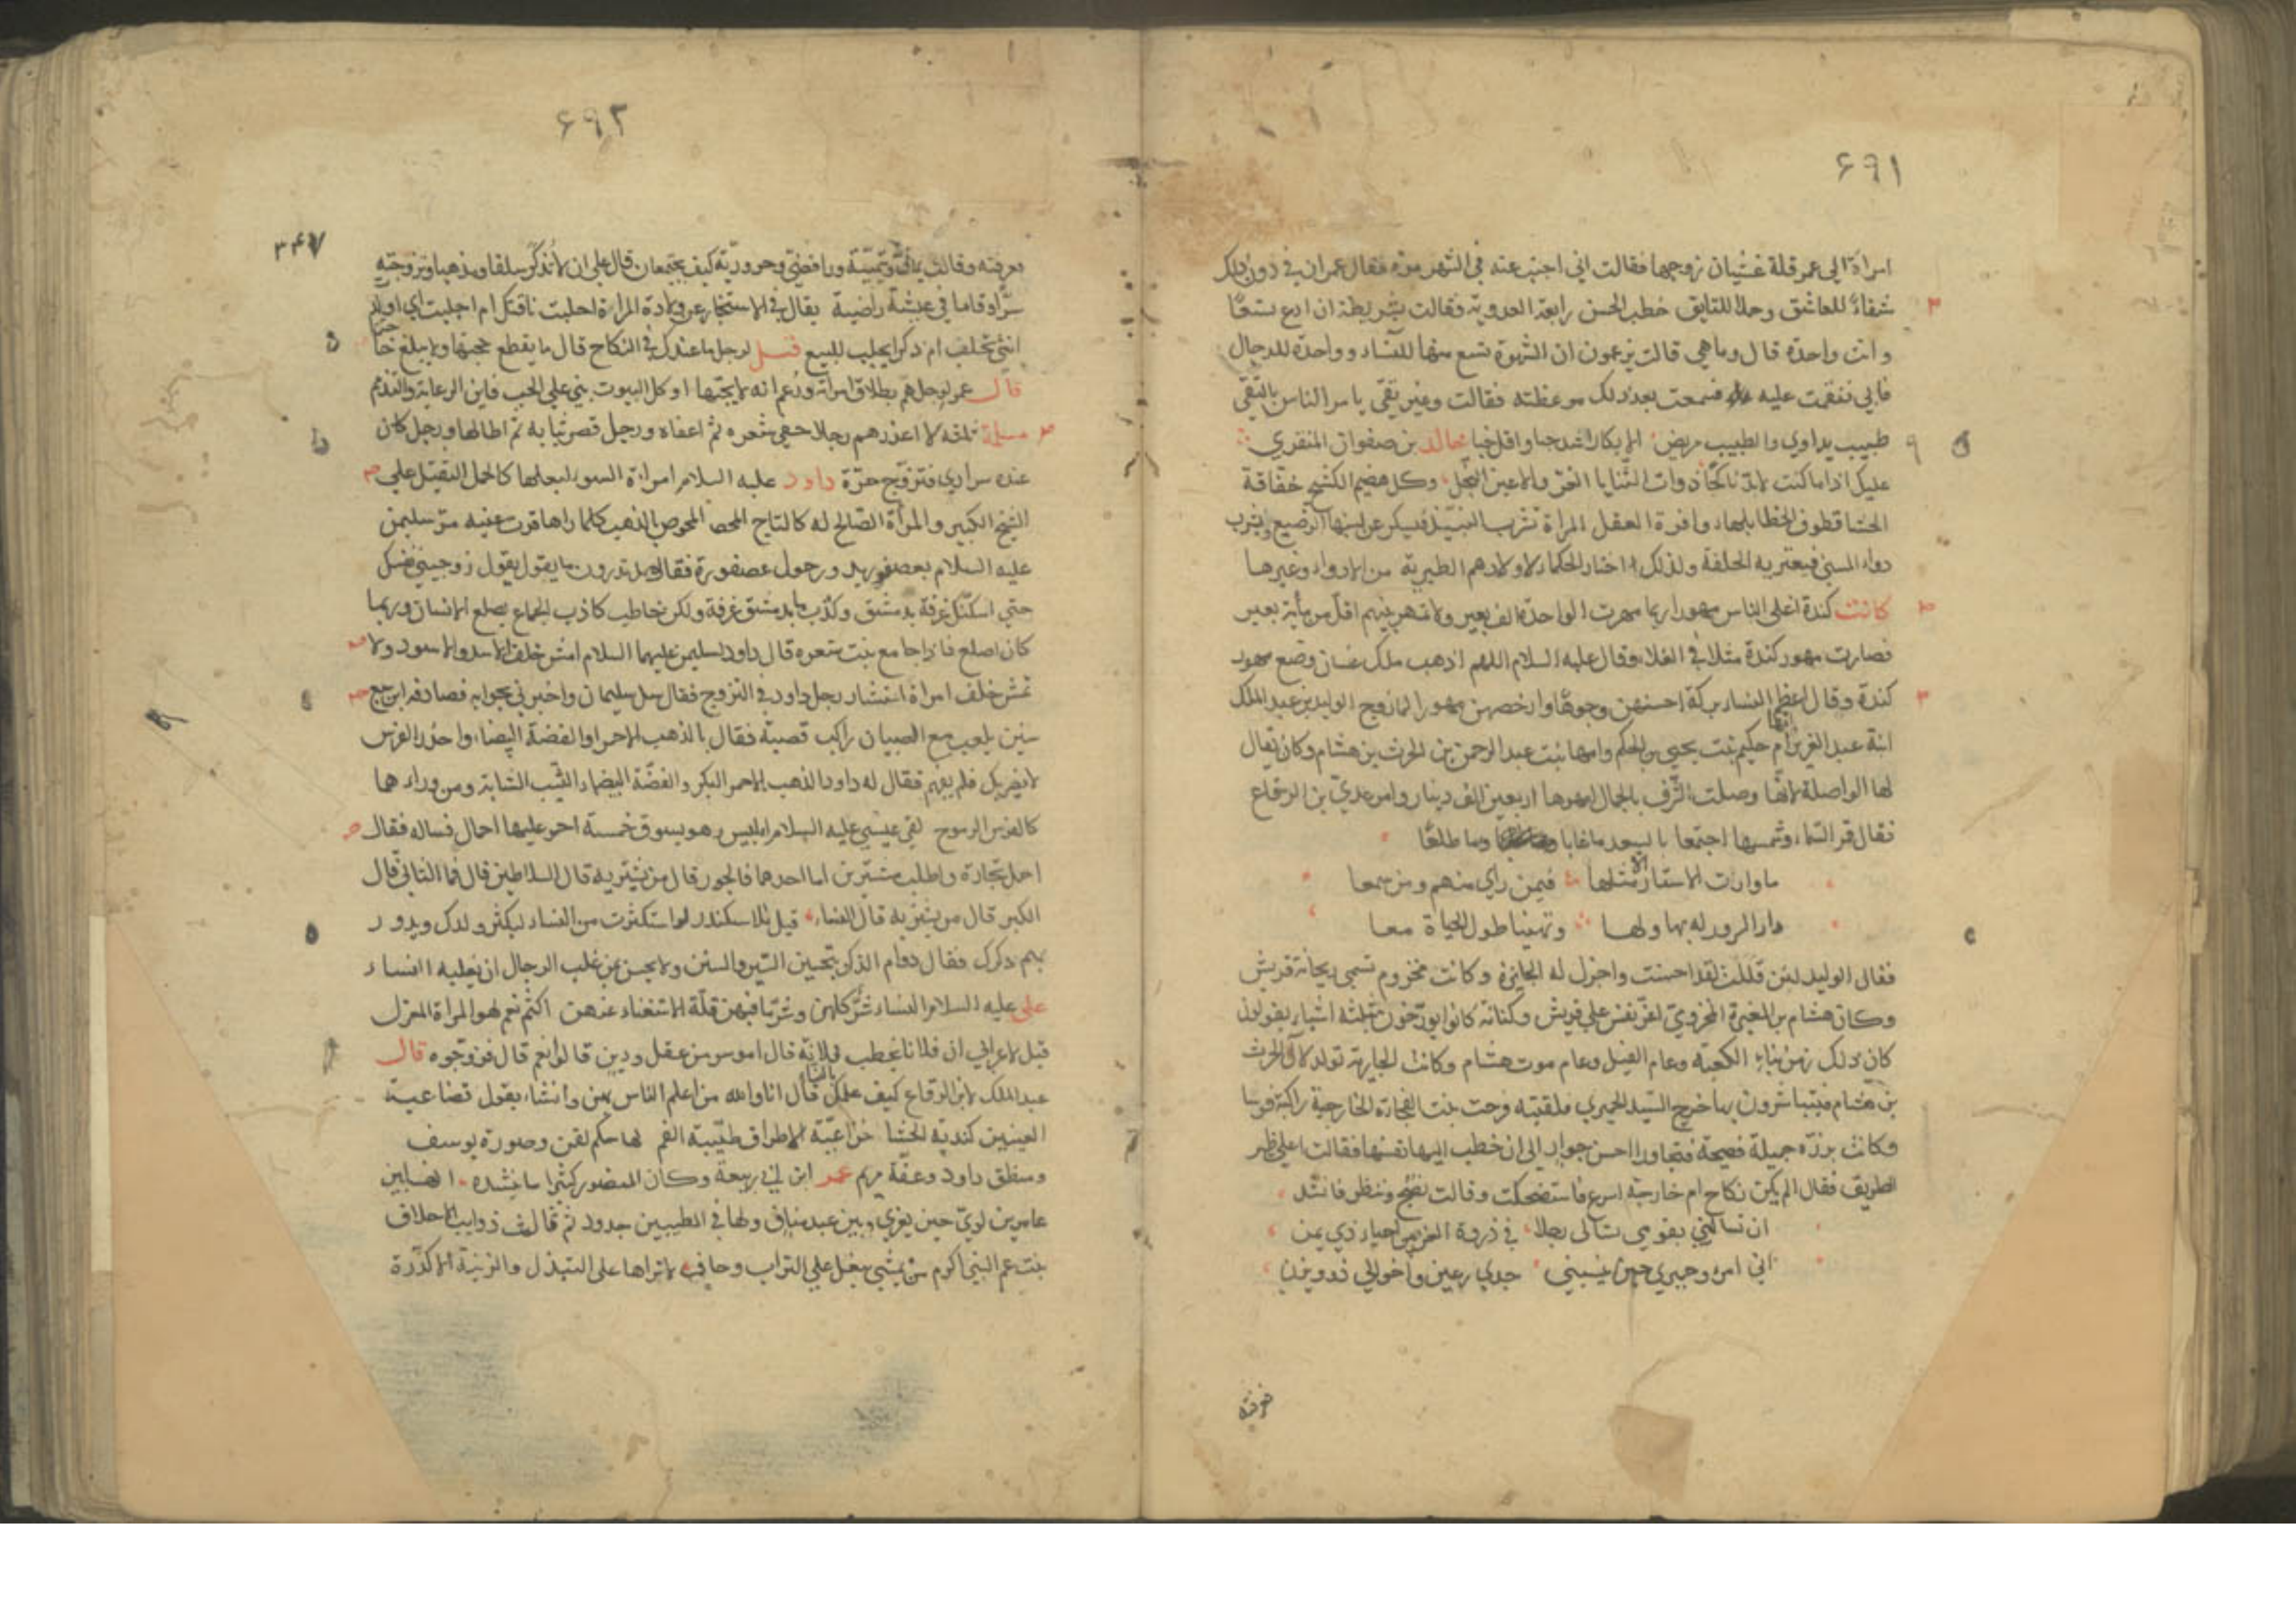 ۶۹۱
امراة الى عمر قلة غشيان زوجها فقالت اني اجيب عنه في الشهر مرة فقال عمر ان في دون ذلك
شفاءً للعاشق وحلا للتايق خطب الحسن رابعة العدوية فقالت بشريطة ان ادع تسعًا
وانت واحدة قال وما هي قالت يزعمون ان الشهوة تسع منها للنساء وواحدة للرجال
فابي فنقمت عليه فسمعت بعد ذلك موعظته فقالت وغير تقي يامر الناس بالتقي
طبيب يداوي والطبيب مريض الابكار اشد حبا واقل خبا خالد بن صفوان المنقري
عليك اذا ما كنت لابد ناكحًا ذوات الثنايا الغر والاعين النجل وكل هضيم الكشح خفاقة
الحشا قطوف الخطا بلهاء وافرة العقل المراة تشرب النبيذ فيسكر عن لبنها الرضيع وتشرب
دواء المسني فيعتريه الحلفة ولذلك اختار الحكماء لاولادهم الطيرية من الادواء وغيرها
كانت كندة اغلى الناس مهورا ربما مهرت الواحدة الف بعير ولا تمهر بينهم اقل من مأية بعير
فصارت مهور كندة مثلا في الغلاء وقال عليه السلام اللهم اذهب ملك غسان وضع مهور
كندة وقال اعظم النساء بركة احسنهن وجوهًا وارخصهن مهورا لما تزوج الوليد بن عبد الملك
ابنة عبد العزيز ام حكيم بنت يحيي بن الحكم وامها بنت عبد الرحمن بن الحرث بن هشام وكان يقال
لها الواصلة لانها وصلت الشرف بالجمال امهرها اربعين الف دينار وامر عدي بن الرقاع
فقال قمر السماء وشمسها اجتمعا بالسعد ما غابا وما طلعا
ما وارت الاستار مثلها فيمن راي منهم ومن سمعا
دار السرور له بها ولها وتهنيا طول الحياة معا
فقال الوليد لئن قللت لقد احسنت واجزل له الجايزة وكانت مخزوم تسمي ريحانة قريش
وكان هشام بن المغيرة المخزومي على قريش وكنانة كانوا يورخون بثلثة اشياء يقولون
كان ذلك زمن بناء الكعبة وعام الفيل وعام موت هشام وكانت الجارية تولد لآل الحرث
بن هشام فيتباشرون بها خرج السيد الحميري فلقيته بنت الفجاءة الخارجية راكبة فرسا
وكانت برزة جميلة فصيحة فتجاورا احسن جوار الى ان خطب اليها نفسها فقالت اعلى ظهر
الطريق فقال الم يكن نكاح ام خارجة اسرع فاستضحكت وقالت نصبح وننظر فانشد
ان تسالني بقومي تسالي رجلا في ذروة العز من احياء ذي يمن
اني امرء حميري حين تنسبني جدي رعين واخوالي ذوو يزن
فعرفته
۶۹۲
۳۴۷
فعرفته وقالت يماني وتميمية ورافضي وحرورية كيف يجتمعان قال على ان لا تذكر سلفا ومذهبا وتزوجته
سرًا وقاما في عيشة راضية يقال في الاستخبار عن ولادة المراة احلبت ناقتك ام اجلبت اي اولد
انثى تحلب ام ذكر ايجلب للبيع قيل لرجل ما عندك في النكاح قال ما يقطع حجتها ولا يبلغ حاجتها
قال عمر لرجل هم بطلاق امراته وزعم انه لا يحبها او كل البيوت بني على الحب فاين الرعاية والتذمم
مسلمة ثلاثة لا اعذرهم رجلا حفي شعره ثم اعفاه ورجل قصر ثيابه ثم اطالها ورجل كان
عنده سراري فتزوج حرة داود عليه السلام امراة السوء لبعلها كالحمل الثقيل على
الشيخ الكبير والمرأة الصالح له كالتاج المخوص بالذهب كلما راها قرت عينه مر سليمن
عليه السلام بعصفور يدور حول عصفورة فقال هل تدرون ما يقول يقول زوجيني نفسك
حتي اسكنك غرفة بدمشق وكذب ما بدمشق غرفة ولكن خاطب كاذب الجماع يصلع الانسان وربما
كان اصلع فاذا جامع نبت شعره قال داود لسليمن عليهما السلام امش خلف الاسد والاسود ولا
تمش خلف امراة استشار رجل داود في التزوج فقال سل سليمان واخبرني بجوابه فصادفه ابن سبع
سنين يلعب مع الصبيان راكب قصبة فقال بالذهب الاحمر او الفضة البيضاء واحذر الفرس
لا يضربك فلم يفهم فقال له داود الذهب الاحمر البكر والفضة البيضاء الثيب الشابة ومن وراءهما
كالفرس الرموح لقي عيسي عليه السلام ابليس وهو يسوق خمسة احمر عليها احمال فساله فقال
احمل تجارة واطلب مشترين اما احدهما فالجور قال من يشتريه قال السلاطين قال فما الثاني قال
الكبر قال من يشتريه قال النساء قيل للاسكندر لو استكثرت من النساء ليكثر ولدك ويدور
بهم ذكرك فقال دوام الذكر بتحسين السير والسنن ولا يحسن بمن غلب الرجال ان يغلبه النساء
على عليه السلام النساء شر كلهن وشر ما فيهن قلة الاستغناء عنهن اكثم نعم لهو المراة المغزل
قيل لاعرابي ان فلانا يخطب فلانة قال اموسر من عقل ودين قالوا نعم قال فزوجوه قال
عبد الملك لابن الرقاع كيف علمك بالنساء قال انا والله من اعلم الناس بهن وانشاء يقول قضاعية
العينين كندية الحشا خزاعية الاطراف طيبة الفم لها حكم لقمن وصورة يوسف
ومنطق داود وعفة مريم عمر ابن ابي ربيعة وكان المنصور كثيرا ما ينشده لها بين
عامر بن لوي حين يعزي وبين عبد مناف ولها في المطيبين جدود ثم نالت ذوايب الاحلاف
بنت عم النبي اكرم من يمشي بنعل على التراب وحافي لا تراها على التبذل والزينة الا كدرة